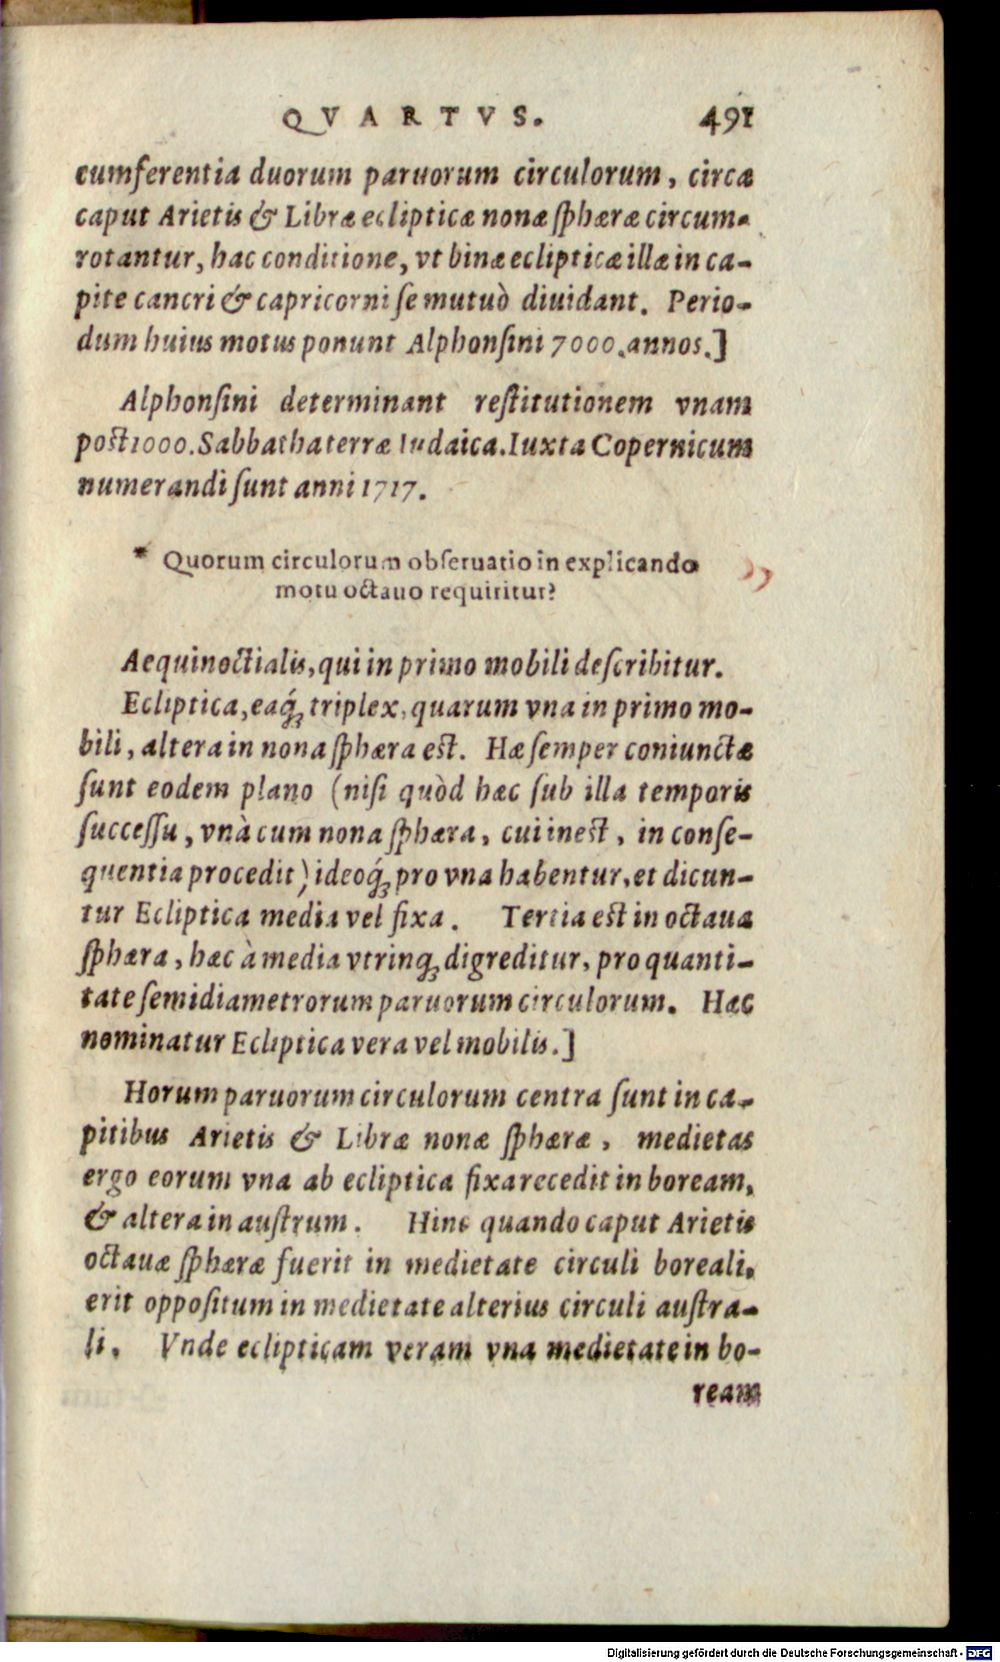 QVARTVS. 491
cumferentia duorum paruorum circulorum, circa
caput Arietis & Libræ eclipticæ nonæ sphæræ circum-
rotantur, hac conditione, vt binæ eclipticæ illæ in ca-
pite cancri & capricorni se mutuò diuidant. Perio-
dum huius motus ponunt Alphonsini 7000. annos.]
Alphonsini determinant restitutionem vnam
post 1000. Sabbatha terræ Iudaica. Iuxta Copernicum
numerandi sunt anni 1717.
* Quorum circulorum obseruatio in explicando
motu octauo requiritur?
Aequinoctialis, qui in primo mobili describitur.
Ecliptica, eaq́; triplex, quarum vna in primo mo-
bili, altera in nona sphæra est. Hæ semper coniunctæ
sunt eodem plano (nisi quòd hæc sub illa temporis
successu, vnà cum nona sphæra, cui inest, in conse-
quentia procedit) ideoq́; pro vna habentur, et dicun-
tur Ecliptica media vel fixa. Tertia est in octaua
sphæra, hæc à media vtrinq; digreditur, pro quanti-
tate semidiametrorum paruorum circulorum. Hæc
nominatur Ecliptica vera vel mobilis.]
Horum paruorum circulorum centra sunt in ca-
pitibus Arietis & Libræ nonæ sphæræ, medietas
ergo eorum vna ab ecliptica fixa recedit in boream,
& altera in austrum. Hinc quando caput Arietis
octauæ sphæræ fuerit in medietate circuli boreali,
erit oppositum in medietate alterius circuli austra-
li. Vnde eclipticam veram vna medietate in bo-
ream
Digitalisierung gefördert durch die Deutsche Forschungsgemeinschaft - DFG